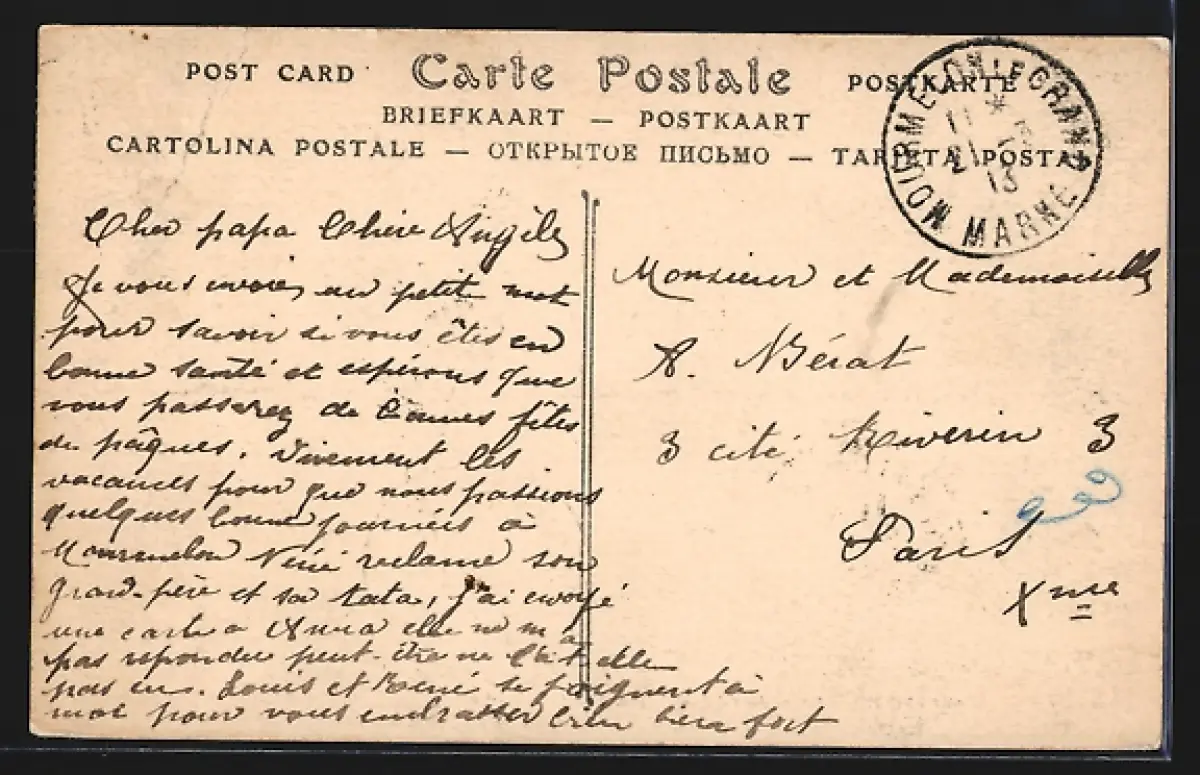 POST CARD Carte Postale POSTKARTE
BRIEFKAART — POSTKAART
CARTOLINA POSTALE — ОТКРЫТОЕ ПИСЬМО — TARJETA POSTAL
MOURMELON-LE-GRAND
11 *
21 - 3
13
MARNE
Cher papa Chère Angèle
Je vous envoie un petit mot
pour savoir si vous êtes en
bonne santé et espérons que
vous passerez de bonnes fêtes
de pâques. Vivement les
vacances pour que nous passions
quelques bonne journées à
Mourmelon Néné reclame son
grand-père et sa tata, j'ai envoyé
une carte a Anna elle ne m'a
pas repondu peut-être ne l'a t elle
pas eue. Louis et René se joignent à
moi pour vous embrasser bien bien fort
Monsieur et Mademoiselle
A. Bérat
3 cité Riverin 3
Paris
Xme